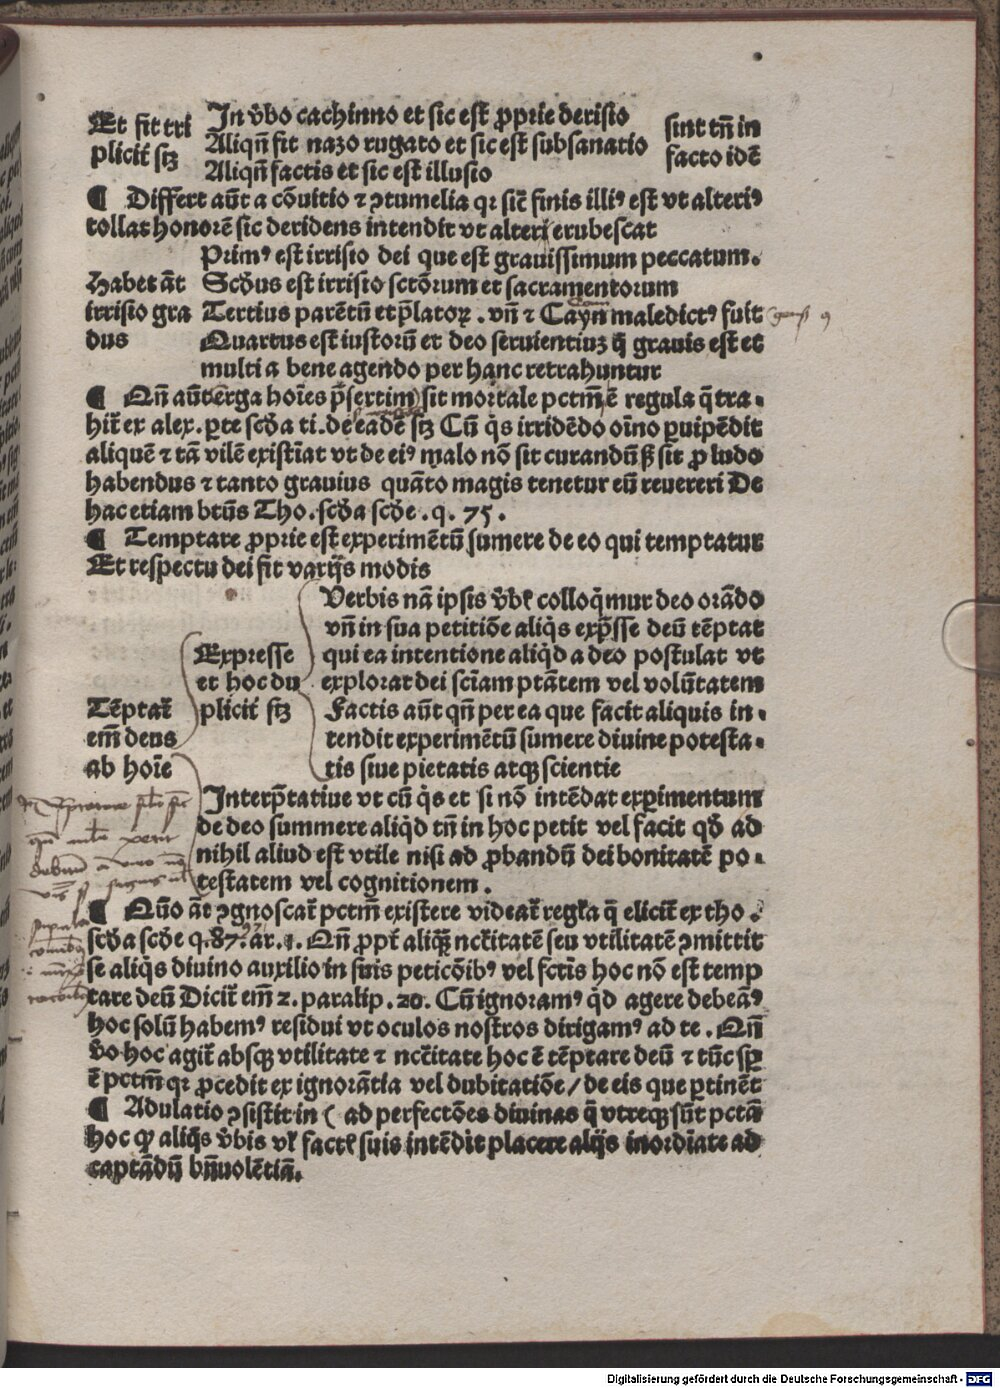 Et fit tri
plicit̃ sꝫ
In v̄bo cachinno et sic est ꝓprie derisio
Aliqñ fit nazo rugato et sic est subsanatio
Aliqñ factis et sic est illusio
sint tñ in
facto idē
¶ Differt aūt a cōuitio ⁊ ꝯtumelia qꝛ sic̃ finis illiꝰ est vt alteriꝰ
tollat honorē sic deridens intendit vt alteri erubescat
Habet āt
irrisio gra
dus
Primꝰ est irrisio dei que est grauissimum peccatum.
Scd̄us est irrisio sctōrum et sacramentorum
Tertius parētū et p̄latoꝝ . vñ ⁊ Cayn maledictꝰ fuit
Quartus est iustorū et deo seruientiuꝫ q̄ grauis est et
multi a bene agendo per hanc retrahuntur
¶ Qñ aūt erga hoīes p̄sertim sit mortale pctm̄ ē regula q̄ tra-
hit̃ ex alex. ꝑte scd̄a ti. de eadē sꝫ Cū q̇s irridēdo oīno ꝑuipēdit
aliquē ⁊ tā vilē existīat vt de eiꝰ malo nō sit curandū ß sit ꝓ ludo
habendus ⁊ tanto grauius quāto magis tenetur eū reuereri De
hac etiam btūs Tho. scd̄a scd̄e . q. 75.
¶ Temptare ꝓprie est experimētū sumere de eo qui temptatur
Et respectu dei fit varijs modis
Tēptat̃
em̄ deus
ab hoīe
Expresse
et hoc du
plicit̃ sꝫ
Verbis nā ipsis v̄bꝭ colloq̄mur deo orādo
vñ in sua petitiōe aliq̇s exp̄sse deū tēptat
qui ea intentione aliq̇d a deo postulat vt
explorat dei sciam ptātem vel volūtatem
Factis aūt qñ per ea que facit aliquis in-
tendit experimētū sumere diuine potesta-
tis siue pietatis atqꝫ scientie
Interp̄tatiue vt cū q̇s et si nō intēdat exꝑimentum
de deo summere aliq̇d tñ in hoc petit vel facit qd̄ ad
nihil aliud est vtile nisi ad ꝓbandū dei bonitatē po-
testatem vel cognitionem.
¶ Quō āt ꝯgnoscat̃ pctm̄ existere videat̃ regl̃a q̄ elicit̃ ex tho.
scd̄a scd̄e q. 87. ar. 1. Qñ ꝓpt̃ aliqꝫ nctitatē seu vtilitatē ꝯmittit
se aliq̇s diuino auxilio in suis peticōibꝰ vel fctīs hoc nō est temp
tare deū Dicit̃ em̄ 2. paralip. 20. Cū ignoramꝰ q̇d agere debeāꝰ
hoc solū habemꝰ residui vt oculos nostros dirigamꝰ ad te. Qñ
v̄o hoc agit̃ absqꝫ vtilitate ⁊ nctitate hoc ē tēptare deū ⁊ tūc sꝑ
ē pctm̄ qꝛ ꝓcedit ex ignorātia vel dubitatiōe / de eis que ꝑtinēt
¶ Adulatio ꝯsistit in ( ad perfectōes diuinas q̄ vtreqꝫ sūt pctā
hoc ꝙ aliq̇s v̄bis vl̃ factꝭ suis intēdit placere alijs inordīate ad
captādū bñuolētiā.
Digitalisierung gefördert durch die Deutsche Forschungsgemeinschaft - DFG